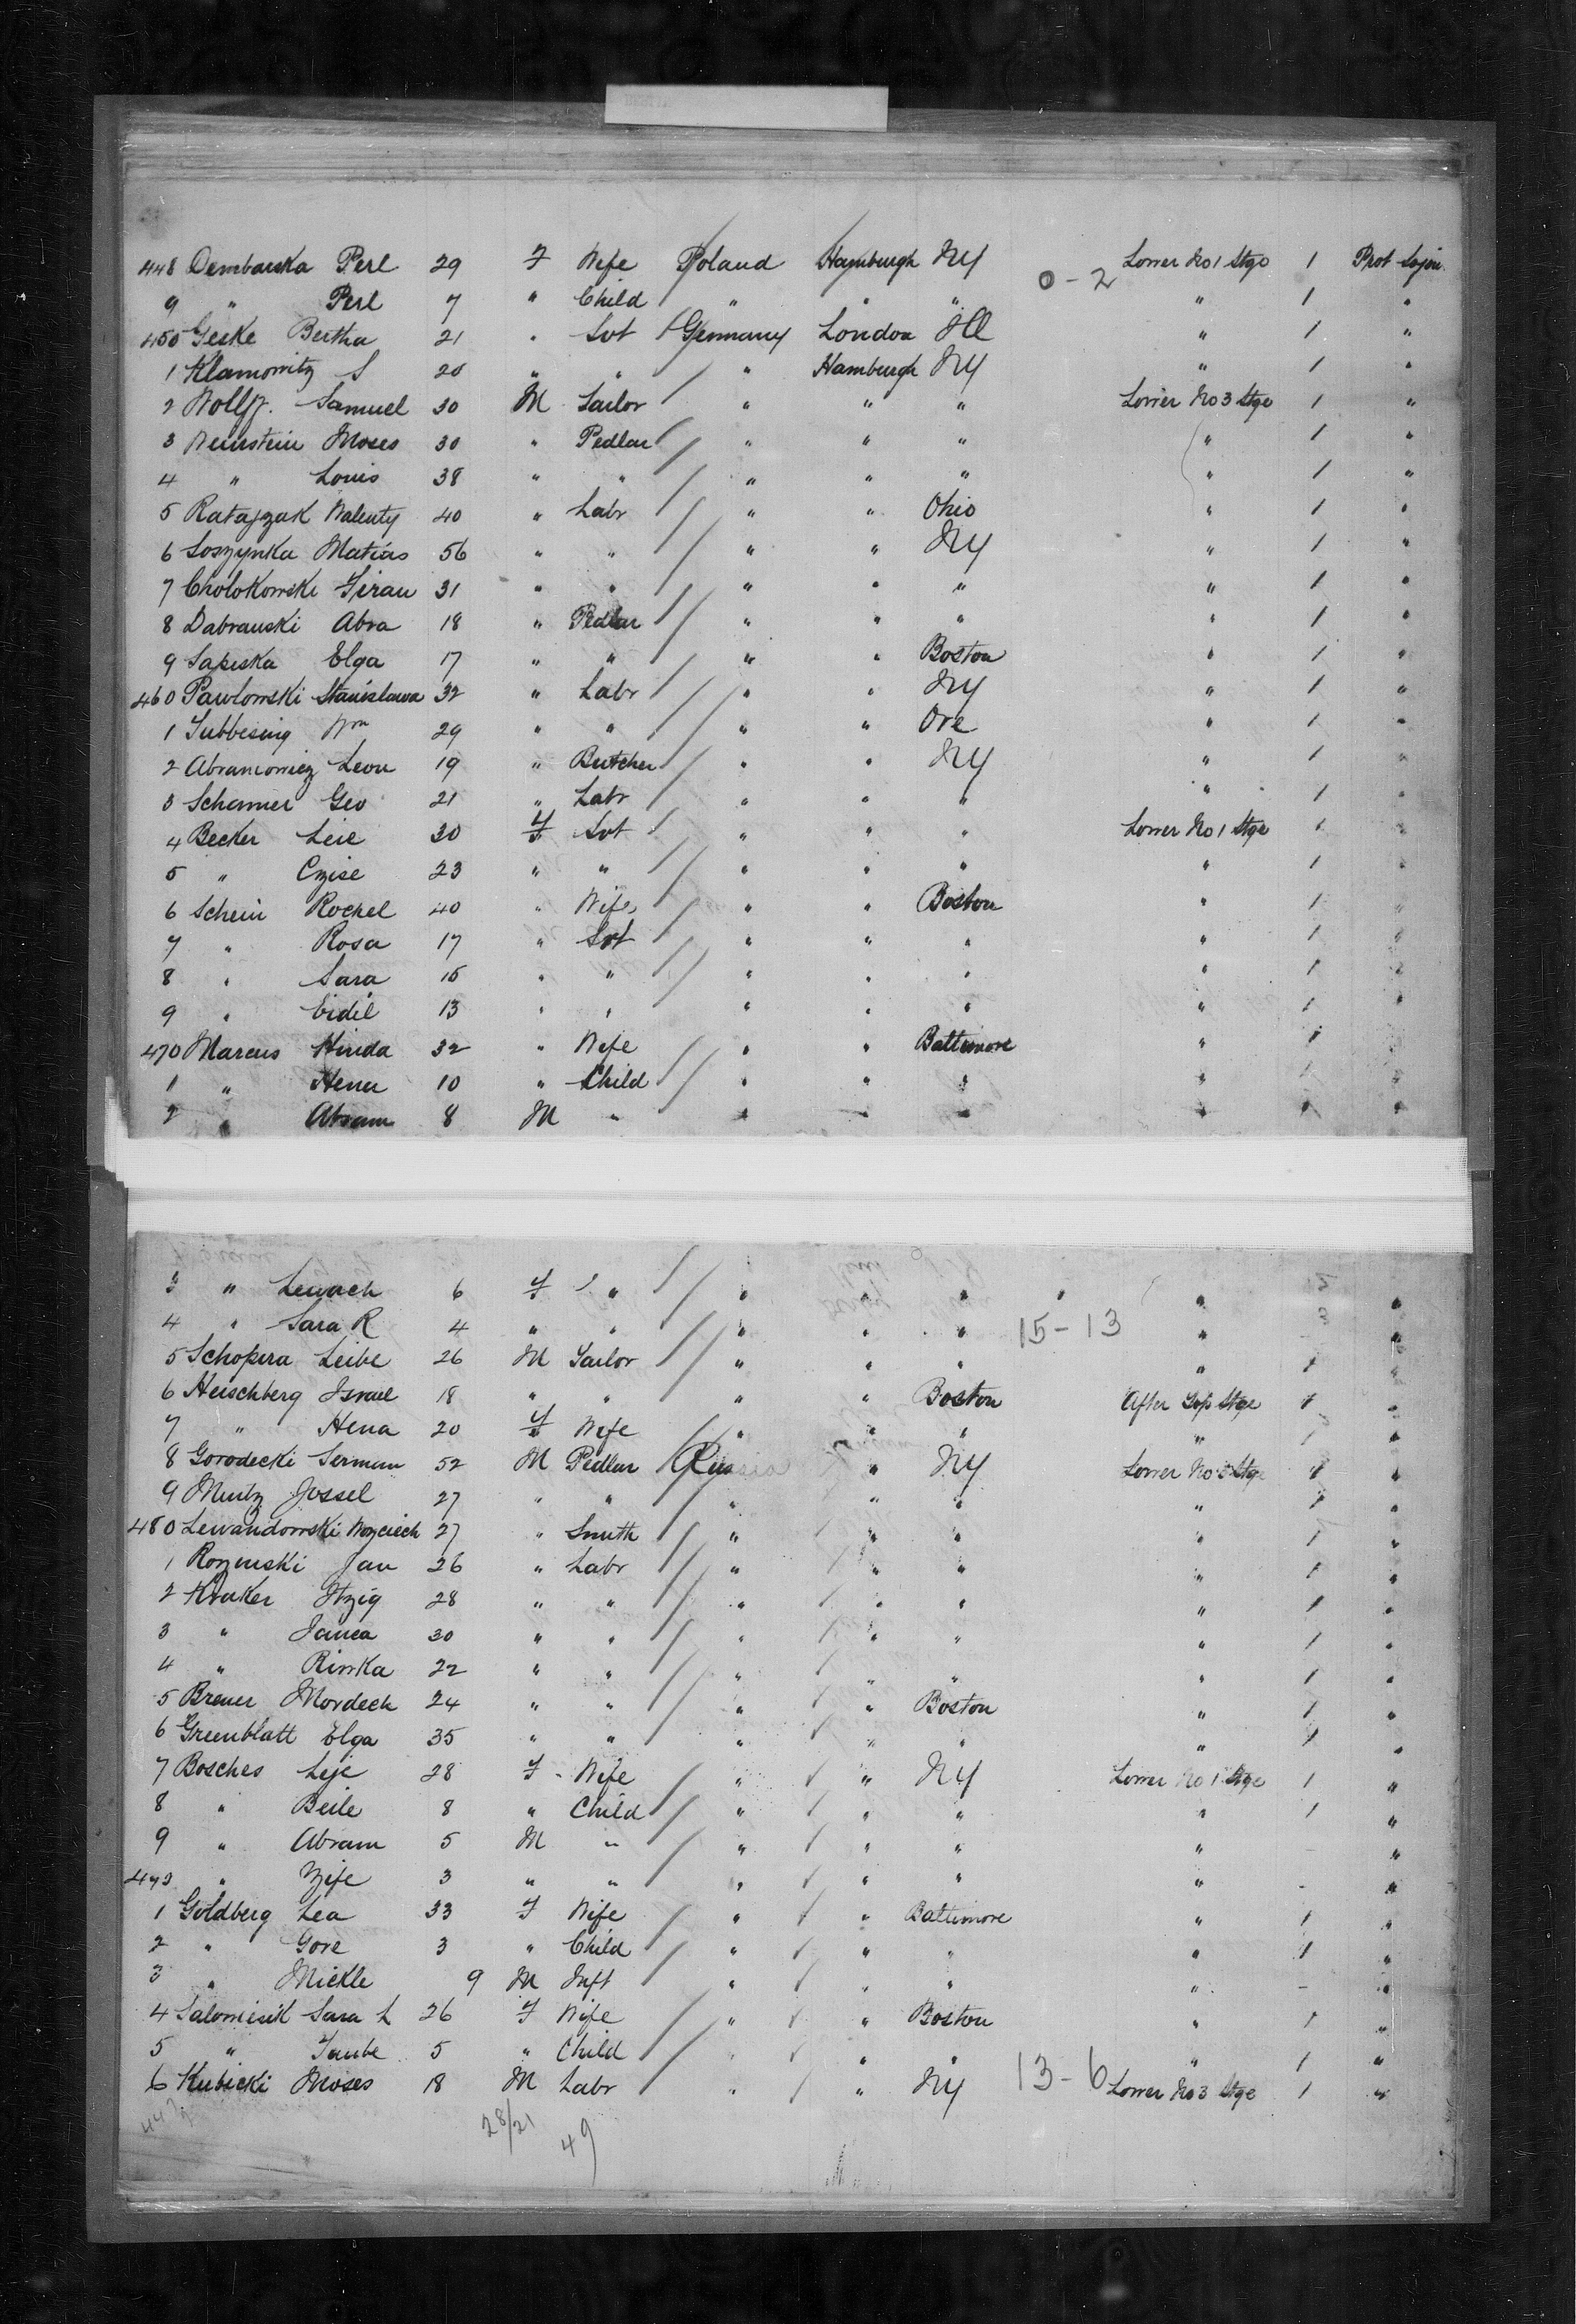 448 Dembarska Perl 29 F Wife Poland Hamburgh NY 0-2 Lower No 1 Stge 1 Prot Sojou.
9 " Perl 7 " Child " " " " 1 "
450 Geske Bertha 21 " Svt Germany London Ill " 1 "
1 Klamowitz S 20 " " " Hamburgh NY " 1 "
2 Wolff. Samuel 30 M Tailor " " " Lower No 3 Stge 1 "
3 Weinstein Moses 30 " Pedlar " " " " 1 "
4 " Louis 38 " " " " " " 1 "
5 Ratajzak Walenty 40 " Labr " " Ohio " 1 "
6 Soszynka Matias 56 " " " " NY " 1 "
7 Cholokowski Firau 31 " " " " " " 1 "
8 Dabrauski Abra 18 " Pedlar " " " " 1 "
9 Sapiska Elga 17 " " " " Boston " 1 "
460 Pawlowski Stanislawa 32 " Labr " " NY " 1 "
1 Subbesing Wm 29 " " " " Ore " 1 "
2 Abramowicz Leon 19 " Butcher " " NY " 1 "
3 Schamer Geo 21 " Labr " " " " 1 "
4 Becker Leie 30 F Svt " " " Lower No 1 Stge 1 "
5 " Czise 23 " " " " " " 1 "
6 Schein Rochel 40 " Wife " " Boston " 1 "
7 " Rosa 17 " Svt " " " " 1 "
8 " Sara 15 " " " " " " 1 "
9 " Eidil 13 " " " " " " 1 "
470 Marcus Hinda 32 " Wife " " Baltimore " 1 "
1 " Hener 10 " Child " " " " 1 "
2 " Abram 8 M " " " " " 1 "
3 " Lewach 6 F " " " " " "
4 " Sara R 4 " " " " " 15-13 " "
5 Schopira Leibe 26 M Tailor " " " " 1 "
6 Herschberg Israel 18 " " " " Boston After Top Stge 1 "
7 " Hena 20 F Wife " " " " 1 "
8 Gorodecki Serman 52 M Pedlar Russia " NY Lower No 3 Stge 1 "
9 Muntz Jossel 27 " " " " " " 1 "
480 Lewandowski Woyciech 27 " Smith " " " " 1 "
1 Rozinski Jan 26 " Labr " " " " 1 "
2 Kraker Itzig 28 " " " " " " 1 "
3 " Janca 30 " " " " " " 1 "
4 " Riwka 22 " " " " " " 1 "
5 Brener Mordech 24 " " " " Boston " 1 "
6 Greenblatt Elga 35 " " " " " " 1 "
7 Bosches Leje 28 F Wife " " NY Lower No 1 Stge 1 "
8 " Beile 8 " Child " " " " 1 "
9 " Abram 5 M " " " " " - "
" Zife 3 " " " " " " - "
1 Goldberg Lea 33 F Wife " " Baltimore " 1 "
2 " Gore 3 " Child " " " " 1 "
3 " Mickle 9 M Inft " " " " - "
4 Salomisik Sara L 26 F Wife " " Boston " 1 "
5 " Taube 5 " Child " " " " 1 "
6 Kubicki Moses 18 M Labr " " NY 13-6 Lower No 3 Stge 1 "
28/21 49